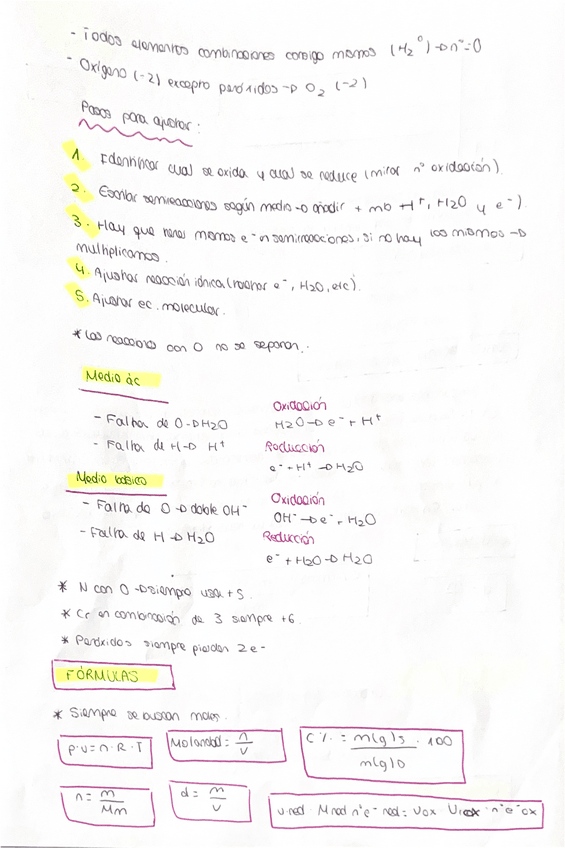 - Todos elementos combinaciones consigo mismos (H₂⁰) → nº=0
- Oxígeno (-2) excepto peróxidos → O₂ (-2)
Pasos para ajustar:
1. Identificar cual se oxida y cual se reduce (mirar nº oxidación)
2. Escribir semireacciones según medio → añadir + mo H⁺, H₂O y e⁻)
3. Hay que tener mismos e⁻ en semireacciones, si no hay los mismos →
multiplicamos.
4. Ajustar reacción iónica (tachar e⁻, H₂O, etc).
5. Ajustar ec. molecular.
* Las reacciones con O no se separan.
Medio ác
Oxidación
- Falta de O → H₂O
H₂O → e⁻ + H⁺
- Falta de H → H⁺
Reducción
e⁻ + H⁺ → H₂O
Medio básico
Oxidación
- Falta de O → doble OH⁻
OH⁻ → e⁻ + H₂O
- Falta de H → H₂O
Reducción
e⁻ + H₂O → H₂O
* N con O → siempre usa +5.
* Cr en combinación de 3 siempre +6.
* Peróxidos siempre pierden 2e-
FÓRMULAS
* Siempre se buscan moles.
P·V=n·R·T
Molaridad = n/V
C % = m(g)s/m(g)D · 100
n = m/Mm
d = m/V
V red · M red nº e⁻ red = V ox · ox · nº e⁻ ox